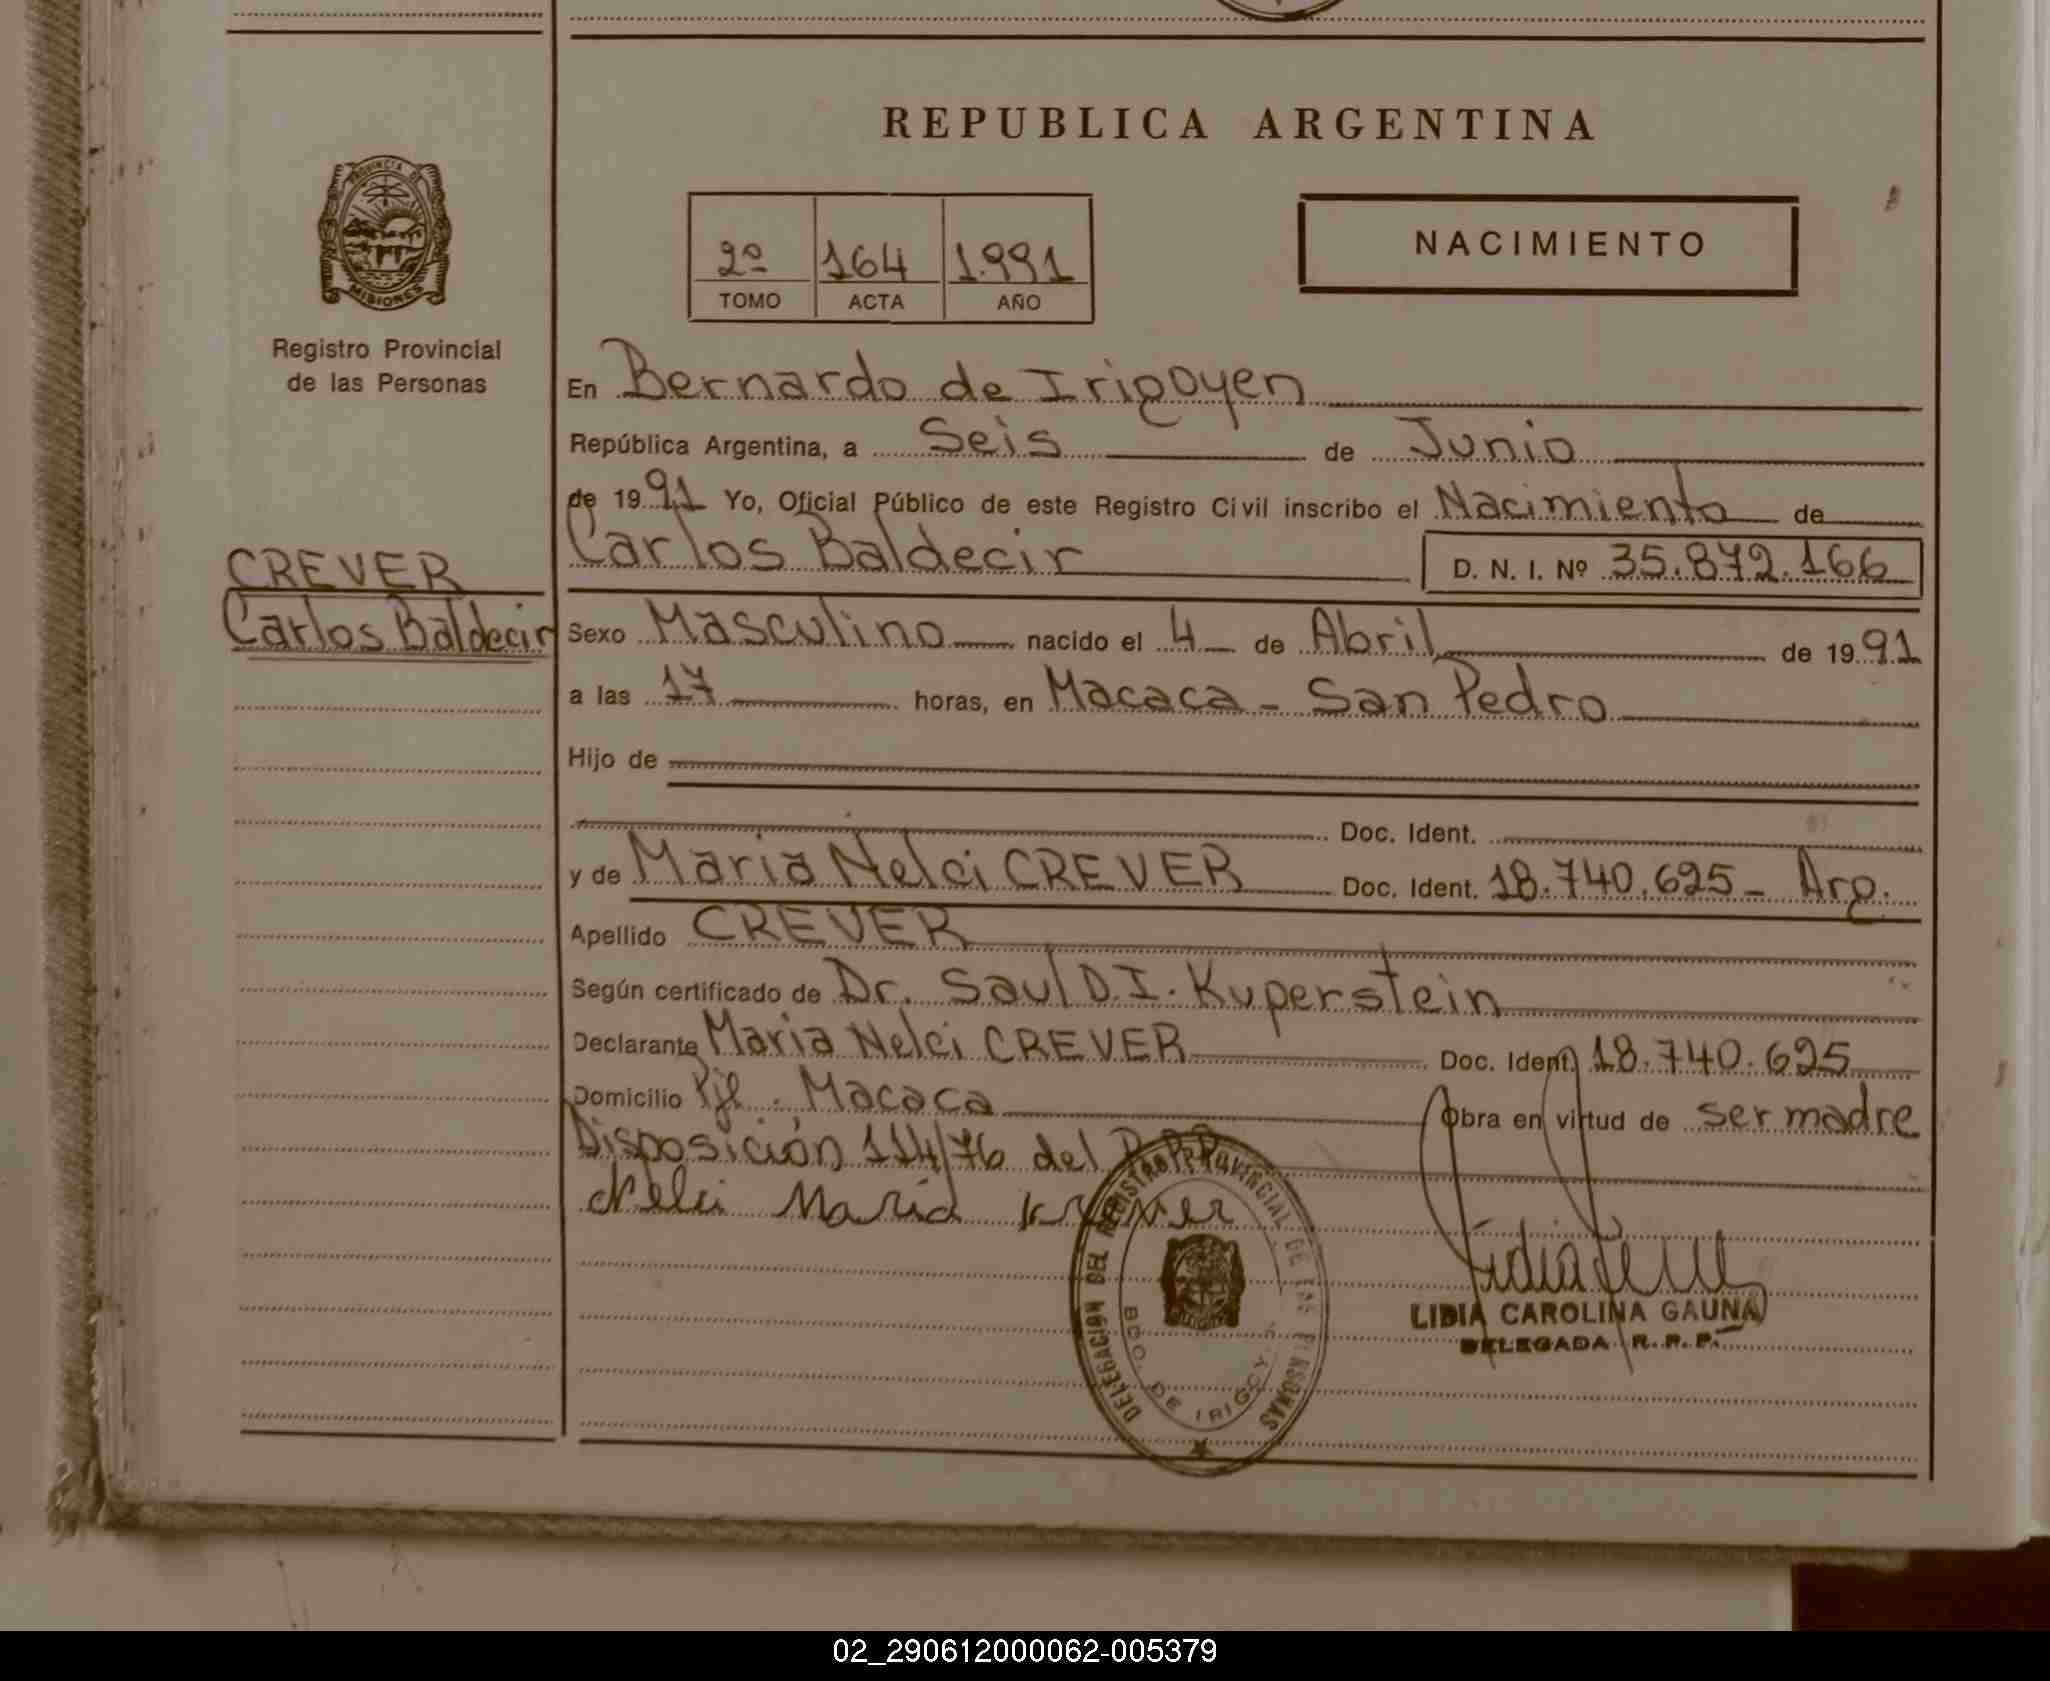 REPUBLICA ARGENTINA
PROVINCIA DE
MISIONES
Registro Provincial
de las Personas
2º 164 1.991
TOMO ACTA AÑO
NACIMIENTO
En Bernardo de Irigoyen
República Argentina, a Seis de Junio
de 1991 Yo, Oficial Público de este Registro Civil inscribo el Nacimiento de
Carlos Baldecir D. N. I. Nº 35.872.166
CREVER
Carlos Baldecir
Sexo Masculino nacido el 4 de Abril de 1991
a las 17 horas, en Macaca - San Pedro
Hijo de
Doc. Ident.
y de Maria Nelci CREVER Doc. Ident. 18.740.625 - Arg.
Apellido CREVER
Según certificado de Dr. Saul D. I. Kuperstein
Declarante Maria Nelci CREVER Doc. Ident. 18.740.625
Domicilio Pje. Macaca Obra en virtud de ser madre
Disposición 114/76 del R.P.P.
Nelci Maria
DELEGACIÓN DEL REGISTRO PROVINCIAL DE LAS PERSONAS
BDO. DE IRIGOY.
LIDIA CAROLINA GAUNA
DELEGADA R. P. P.
02_290612000062-005379